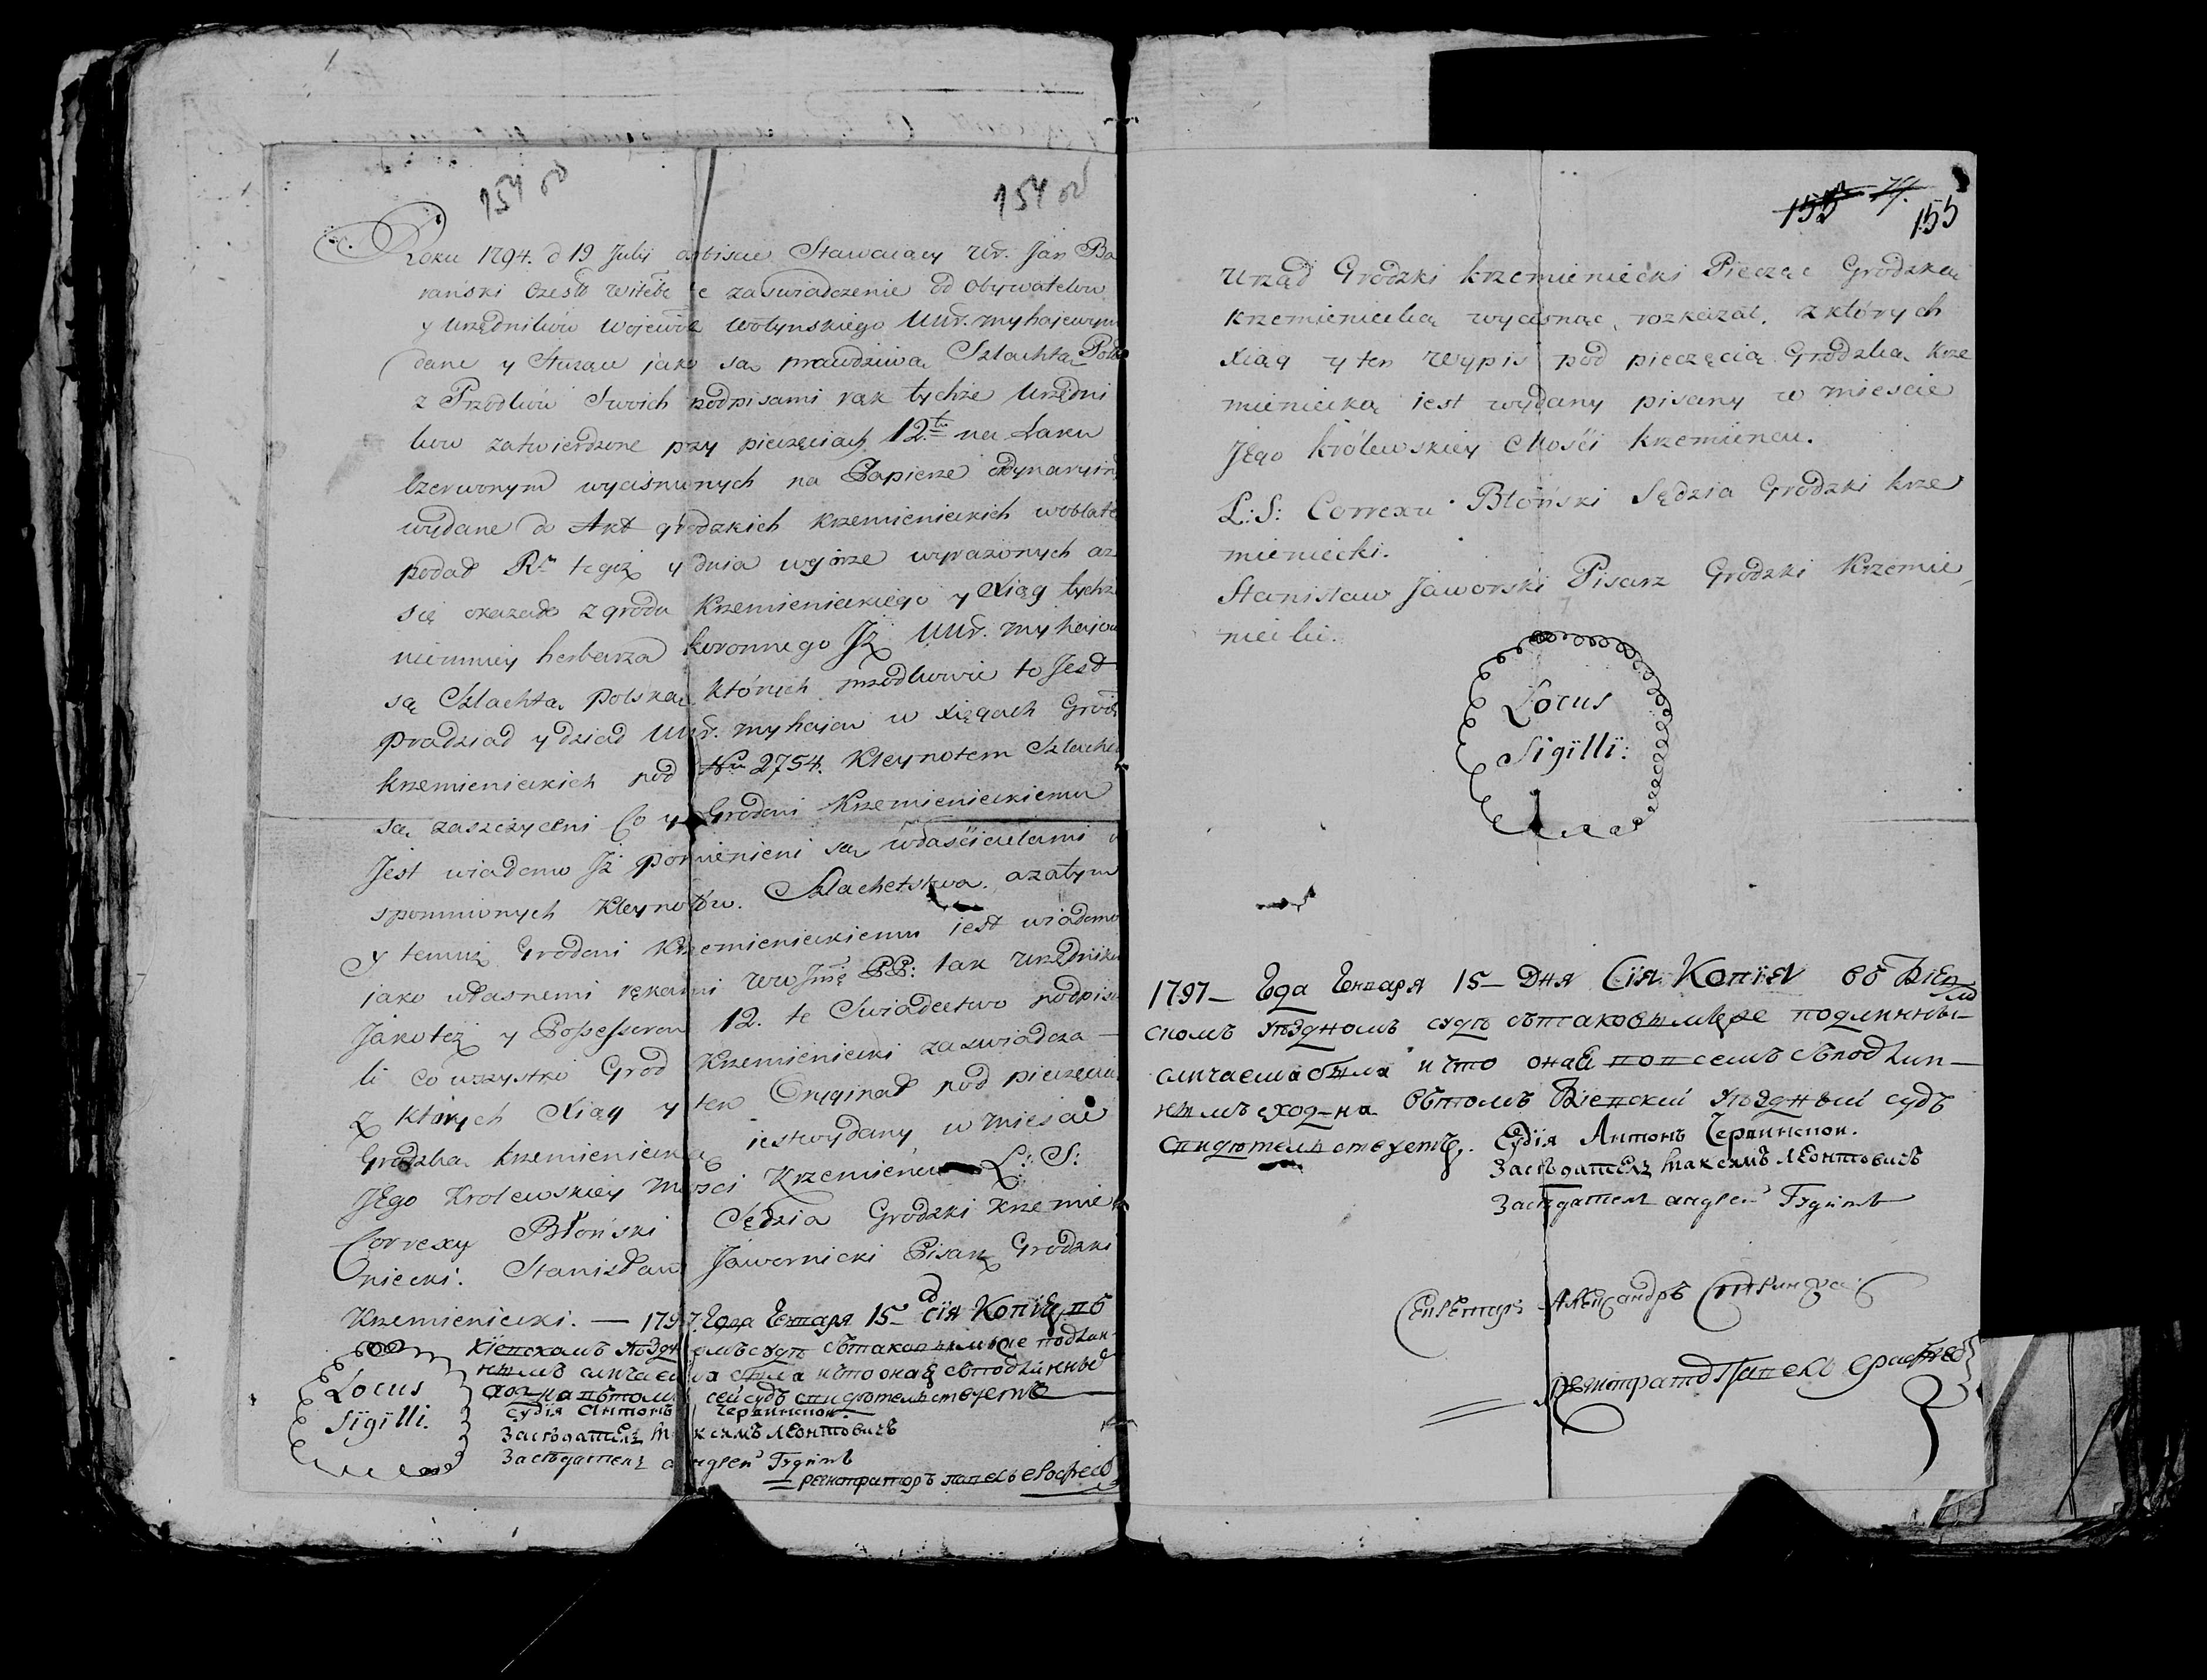 154 об
154 об
Roku 1794. d 19 July osbiscie Stawaiący Ur. Jan Ba
rański zaswiadczenie od obywatelow
y urzędnikow Wojewodz Wołynskiego UUr. myhajewym
dane y Sturząw jako są prawdziwą Szlachtą Pols
z Przodków Swoich podpisami rąk tychże Urzędni
kow zatwierdzone przy pieczęciach 12.tu na Laku
Czerwonym wycisnunych na Papierze ordynaryin
wydane do Akt grodzkich Krzemienieckich w oblate
podał Rtu tegoż y dnia wyórze wyrazonych az
się okazało z grodu Krzemienieckiego y Xiąg tychże
niemniey herbarza koronnego Jż UUr. myhajow
są Szlachtą Polską których przodkowie to Jest
Pradziad y dziad UUr. myhajow w xięgach Grodz
krzemienieckich pod Nu 2754. Kleynotem Szlache
są zaszczyceni Co y Grodowi Krzemienieckiemu
Jest wiadomo Jż pomienieni są właścicielami w
spomnionych Kleynotow. Szlachetstwa. a zatym
y temuż Grodowi Krzemienieckiemu jest wiadomo
jako własnemi rękami WW Jmę PP: tak urzędniku
Jakoteż y Possessorow 12. te Swiadectwo podpisa
li Co wszystko Grod Krzemieniecki zaswiadcza —
z ktorych Xiąg y ten Oryginał pod pieczęcią
Grodzką krzemieniecką iest wydany w miescie
JEgo Krolewskiey Mosci Krzemieńcu L: S:
Correxy Błoński Sędzia Grodzki krzemie
niecki. Stanisław Jawornicki Pisarz Grodzki
Krzemieniecki. — 1797. Года Генваря 15 — сія Копія въ
Кіевскомъ уѣздномъ судѣ съ таковымъ же подлин-
нымъ сличаема была и что оная съ подлинны
сход-на въ томъ сей судъ свидѣтельствуетъ
Locus
Sigilli.
Судія Антонъ Червинской.
Засѣдатель Максимъ Леонтовичъ
Засѣдатель
регистраторъ Павелъ
155 77.
155
Urząd Grodzki krzemieniecki Pieczęć Grodzką
krzemieniecką wycisnąc rozkazał. z których
xiąg y ten Wypis pod pieczęcią Grodzką Krze
mieniecką iest wydany pisany w miescie
JEgo Królewskiey Mości Krzemieńcu.
L:S: Correxu Błoński Sędzia Grodzki Krze
mieniecki.
Stanisław Jaworski Pisarz Grodzki Krzemie
niecki.
Locus
Sigilli:
1797 — Года Генваря 15 — Дня Сія Копія въ Кіев
скомъ уѣздномъ судѣ съ таковымъ же подлинны—
сличаема была и что оная во всемъ съ подлин—
нымъ сход-на въ томъ Кіевскій уѣздный судъ
свидѣтельствуетъ. Судія Антонъ Червинской.
Засѣдатель Максимъ Леонтовичъ
Засѣдатель
Секретарь Александръ
Регистраторъ Павелъ